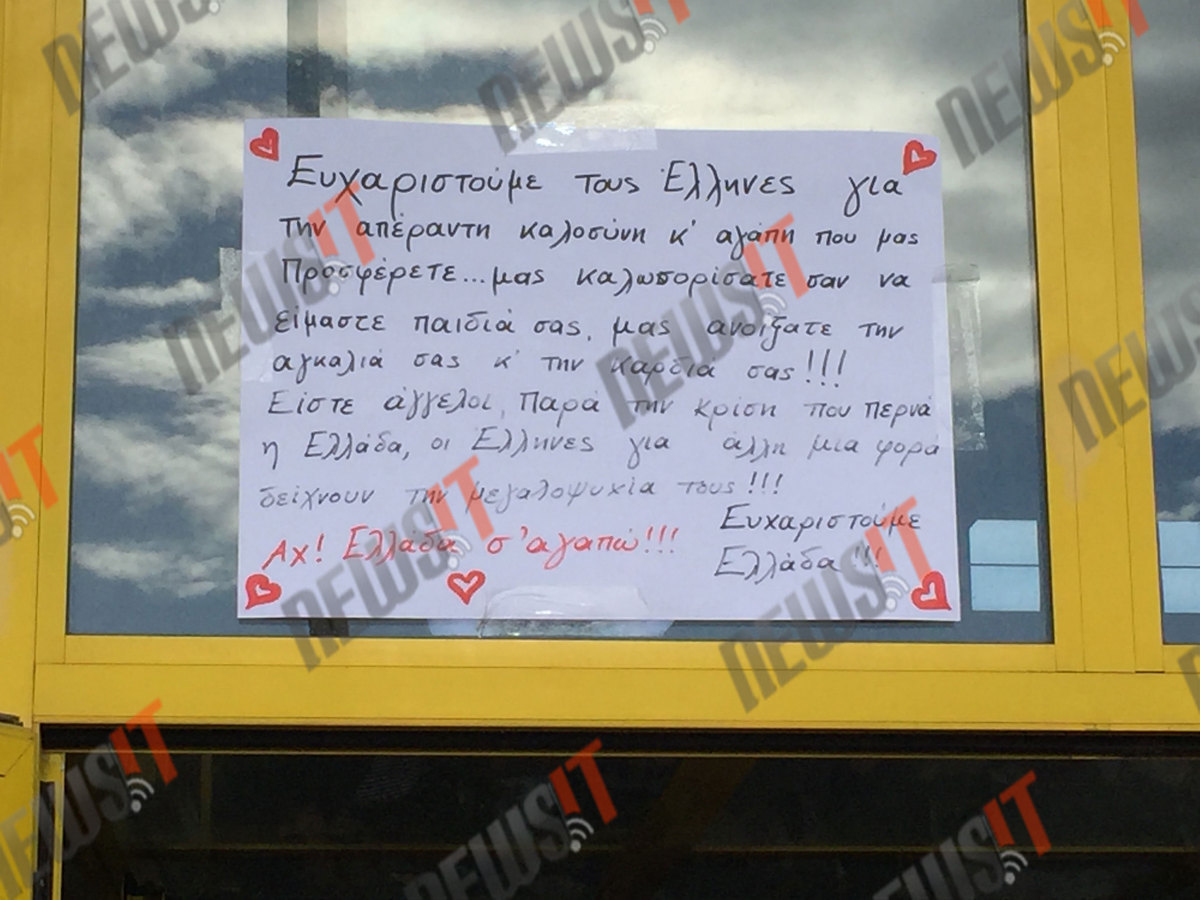 Ευχαριστούμε τους Έλληνες για
την απέραντη καλοσύνη κ' αγάπη που μας
Προσφέρετε...μας καλωσορίσατε σαν να
είμαστε παιδιά σας, μας ανοίξατε την
αγκαλιά σας κ' την καρδιά σας!!!
Είστε άγγελοι, Παρά την κρίση που περνά
η Ελλάδα, οι Έλληνες για άλλη μια φορά
δείχνουν την μεγαλοψυχία τους!!!
Ευχαριστούμε
Ελλάδα!!!
Αχ! Ελλάδα σ'αγαπώ!!!
NEWSIT
NEWSIT
NEWSIT
NEWSIT
NEWSIT
NEWSIT
NEWSIT
NEWSIT
NEWSIT
NEWSIT